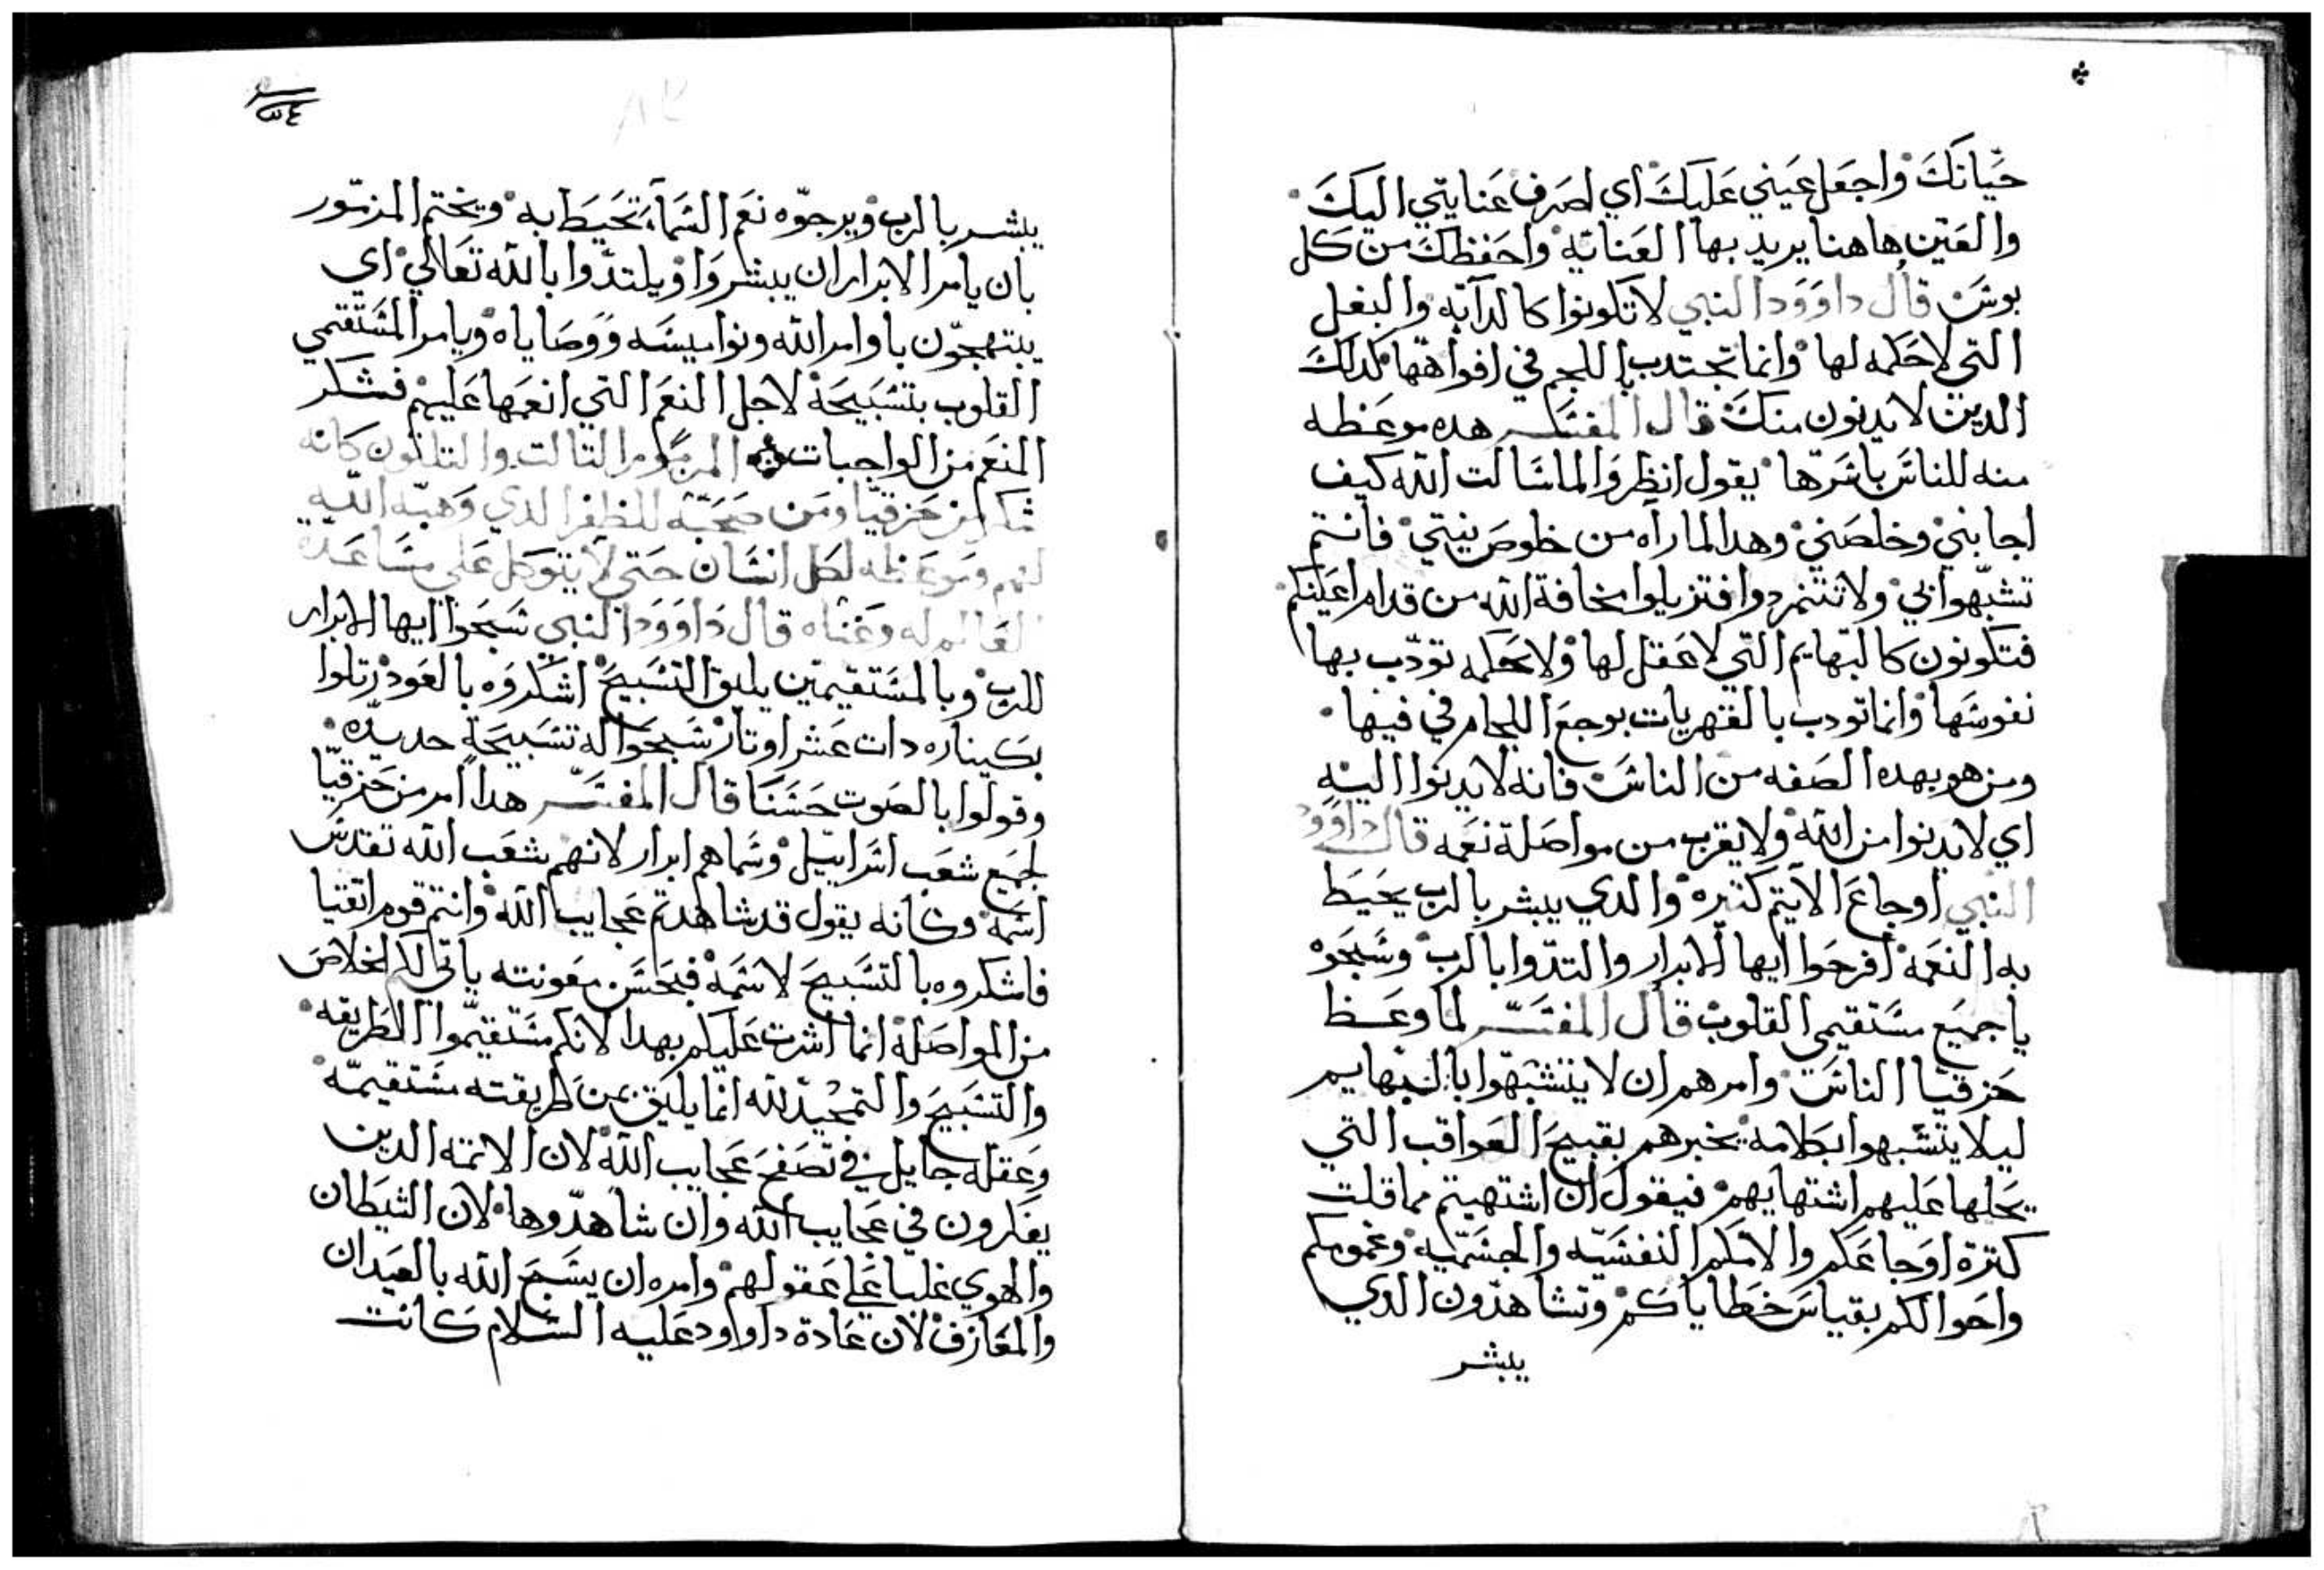 حيّاتك واجعل عيني عليك اي اصرف عنايتي اليك
والعين هاهنا يريد بها العنايه واحفظك من كل
بوس قال داوود النبي لا تكونوا كالدابه والبغل
التي لا حكمه لها وانما تجتدب باللجم في افواهها كدلك
الدين لا يدنون منك قال المفسر هده موعظه
منه للناس باسرها يقول انظروا لما سالت الله كيف
اجابني وخلصني وهدا لما راه من خلوص نيتي فانتم
تشبهوا بي ولا تتنمردوا فتزيلوا مخافة الله من قدام اعينكم
فتكونون كالبهايم التي لا عقل لها ولا حكمه تودب بها
نفوسها وانما تودب بالقهريات بوجع اللجام في فيها
ومن هو بهده الصفه من الناس فانه لا يدنوا اليه
اي لا يدنوا من الله ولا يقرب من مواصلة نعمه قال داوود
النبي اوجاع الاثيم كثيره والدي يبشر بالرب يحيط
به النعمه افرحوا ايها الابرار والتدوا بالرب وسبحوه
يا جميع مستقيمي القلوب قال المفسر لما وعظ
حزقيا الناس وامرهم ان لا يتشبهوا بالبهايم
ليلا يتشبهوا بكلامه يخبرهم بقبيح العواقب التي
يحلها عليهم اشتهايهم فيقول ان اشتهيتم مما قلت
كترة اوجاعكم والامكم النفسيه والجسميه وغمومكم
واحوالكم بقياس خطاياكم وتشاهدون الدي
يبشر
يبشر بالرب ويرجوه نعم السما تحيط به ويختم المزمور
بان يامر الابرار ان يبشروا ويلتدوا بالله تعالي اي
يبتهجون باوامر الله ونواميسه ووصاياه ويامر المستقمي
القلوب بتسبيحه لاجل النعم التي انعمها عليهم فشكر
المنعم من الواجبات المزمور التالت والتلتون كانه
شكر من حزقيا ومن صحبه للظفر الدي وهبه الله
لهم وموعظه لكل انسان حتي لا يتوكل علي مساعدة
العالم له وغناه قال داوود النبي سبحوا ايها الابرار
للرب وبالمستقيمين يليق التسبيح اشكروه بالعود رتلوا
بكيناره دات عشر اوتار سبحوا له تسبيحة حديده
وقولوا بالصوت حسنا قال المفسر هدا امر من حزقيا
لجميع شعب اسراييل وسماهم ابرار لانهم شعب الله تقدس
اسمه وكانه يقول قد شاهدتم عجايب الله وانتم قوم اتقيا
فاشكروه بالتسبيح لاسمه فبحسن معونته ياتي لكم الخلاص
من المواصلة انما اشرت عليكم بهدا لانكم مستقيموا الطريقه
والتسبيح والتمجيد لله انما يليق بمن طريقته مستقيمه
وعقله جايل في تصفح عجايب الله لان الاتمه الدين
يفكرون في عجايب الله وان شاهدوها لان الشيطان
والهوي غلبا علي عقولهم وامره ان يسبح الله بالعيدان
والمعازف لان عادة داوود عليه السلام كانت